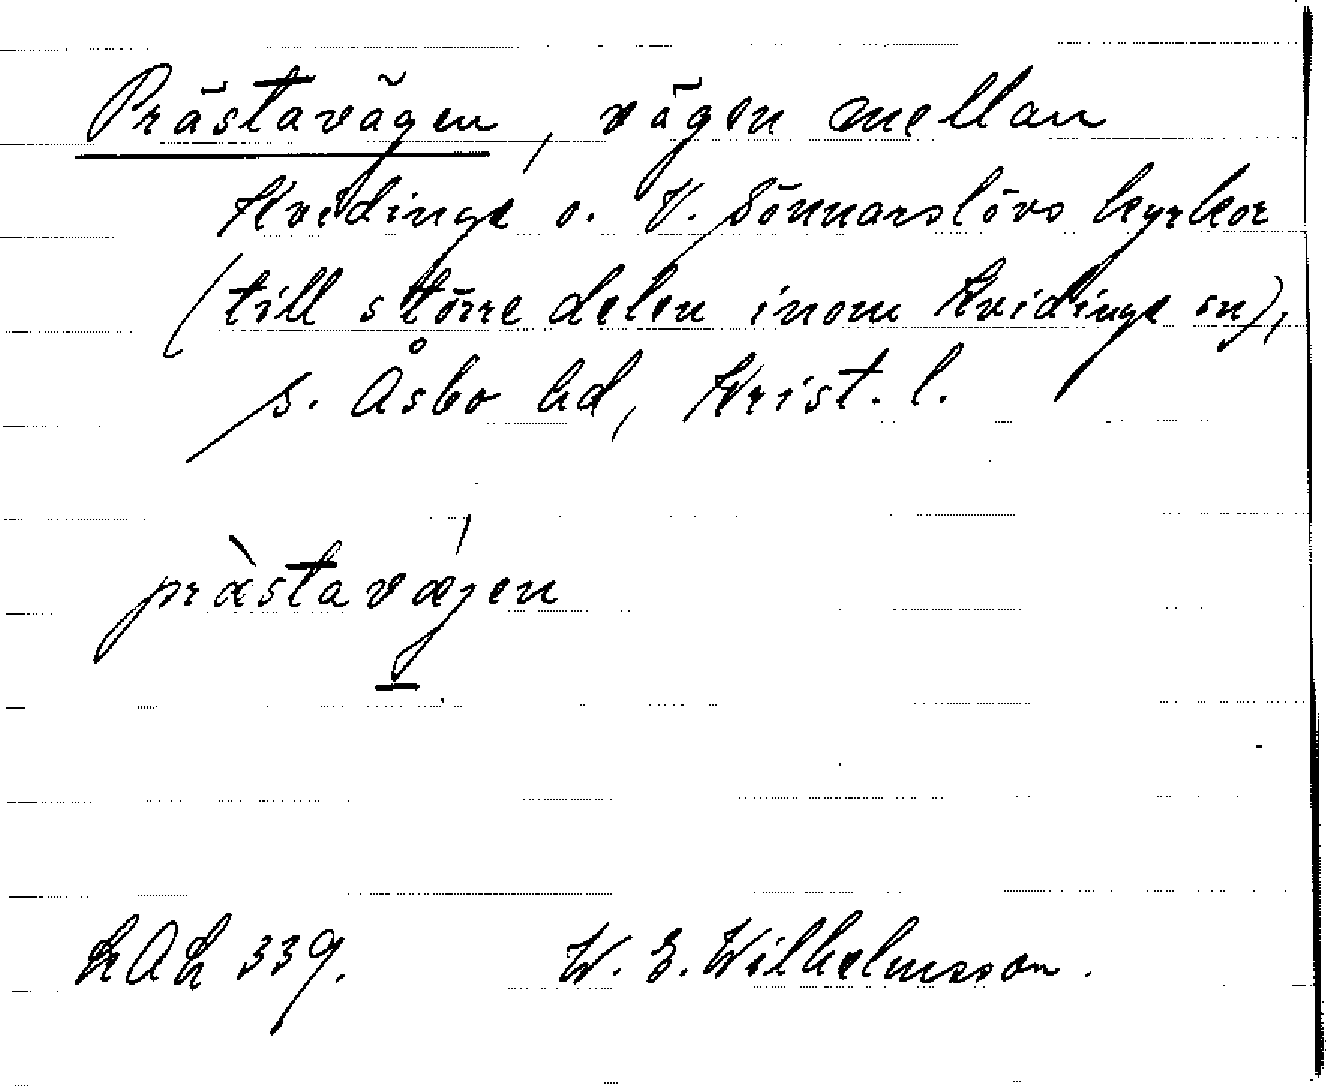 Prästavägen, vägen mellan
Kvidinge o. V. Sönnarslövs kyrkor
(till större delen inom Kvidinge sn),
S. Åsbo hd, Krist. l.
prὰstavǽjen
LAL 339. W. E. Wilhelmsson.